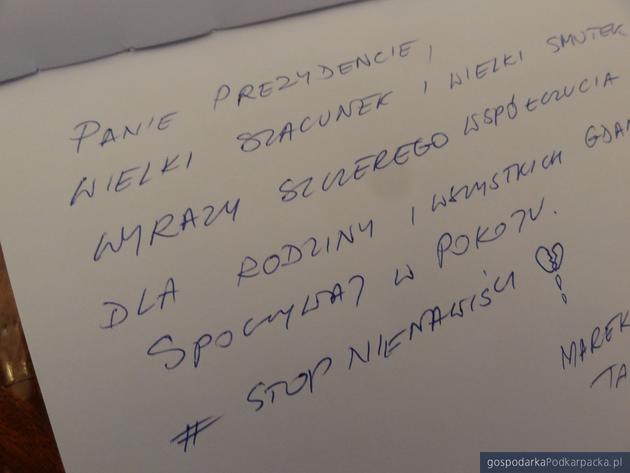 PANIE PREZYDENCIE,
WIELKI SZACUNEK I WIELKI SMUTEK
WYRAZY SZCZEREGO WSPÓŁCZUCIA
DLA RODZINY I WSZYSTKICH GDAŃ
SPOCZYWAJ W POKOJU.
# STOP NIENAWIŚCI !
MAREK
TA
gospodarkaPodkarpacka.pl